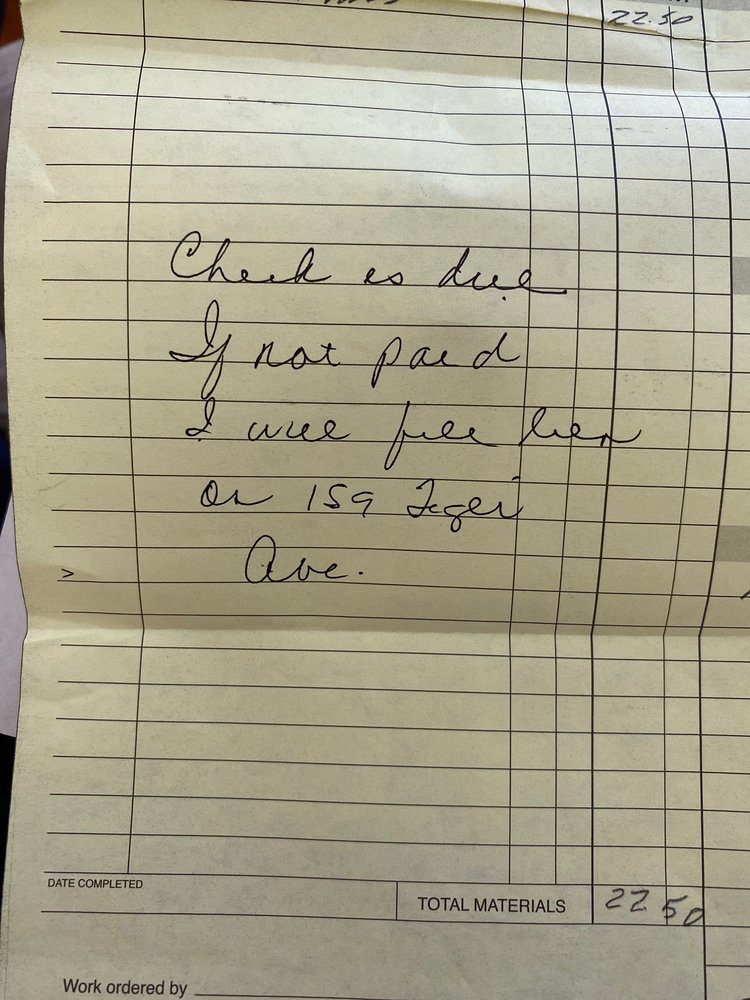 22.50
Check is due
If not paid
I will file lien
on 159 Teger
Ave.
>
DATE COMPLETED
TOTAL MATERIALS 22 50
Work ordered by